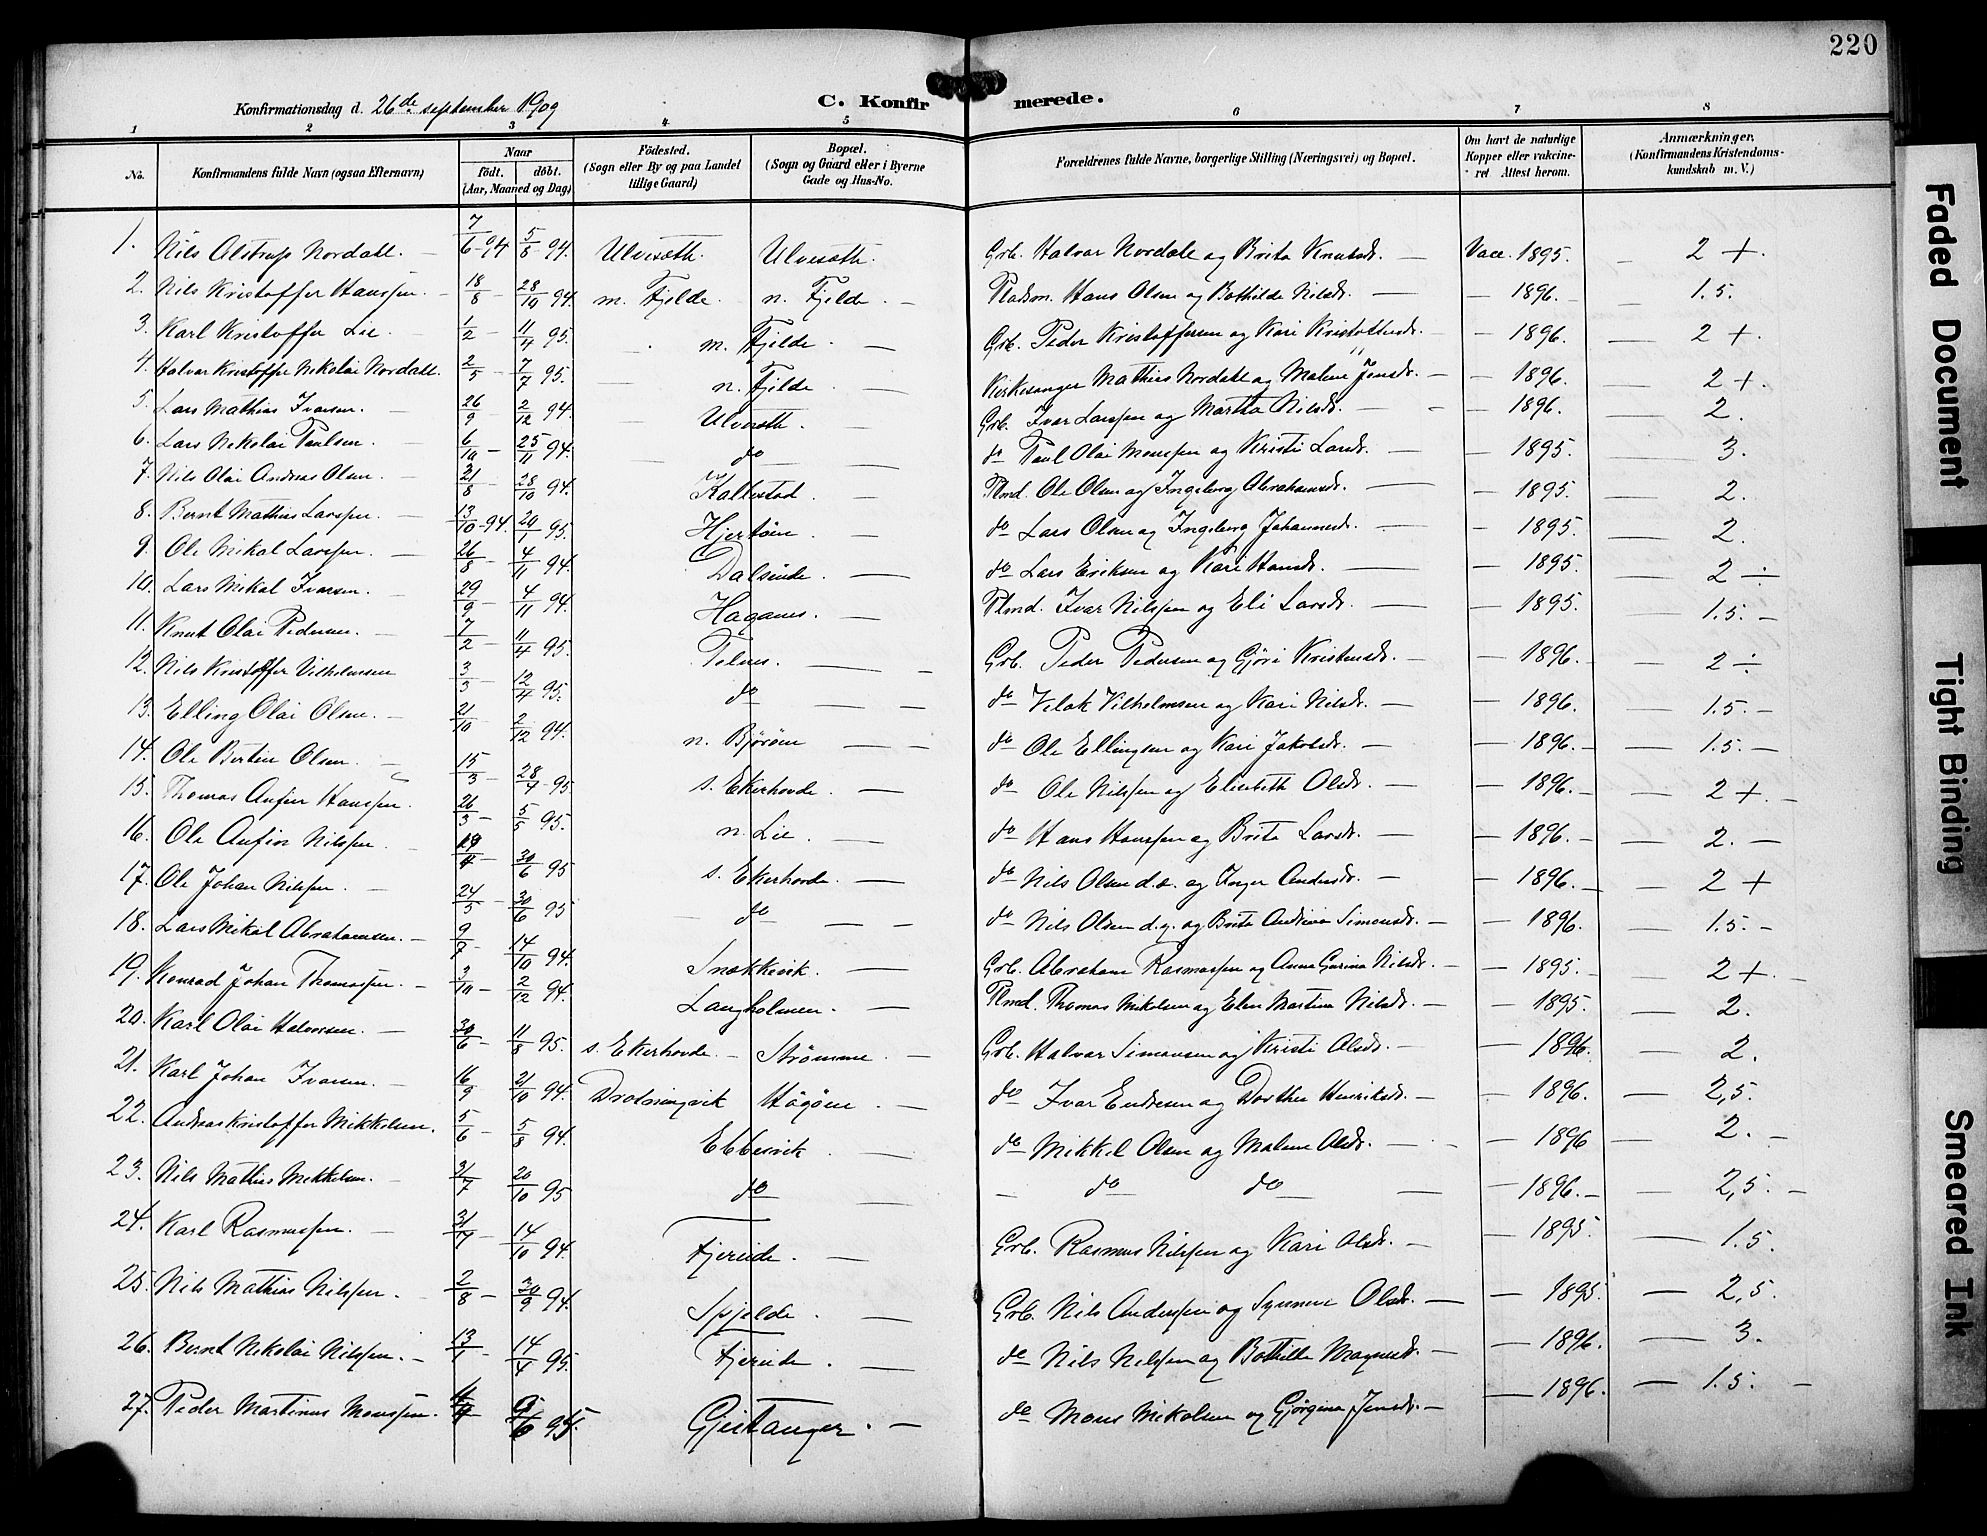 220
Konfirmationsdag d. 26de september 1909
C. Konfirmerede.
1 2 3 4 5 6 7 8
No. Konfirmandens fulde Navn (ogsaa Efternavn) Naar födt. döbt. (Aar, Maaned og Dag) Födested. (Sogn eller By og paa Landet tillige Gaard) Bopæl. (Sogn og Gaard eller i Byerne Gade og Hus-No. Forældrenes fulde Navne, borgerlige Stilling (Næringsvei) og Bopæl. Om havt de naturlige Kopper eller vakcineret Attest herom. Anmærkninger. (Konfirmandens Kristendomskundskab m. V.)
1. Nils Alstrup Nordahl. 7/6-94 5/8-94. Ulvesæth. Ulvesæth. Grb. Halvar Nordale og Brita Knutsdr. Vacc. 1895. 2 +.
2. Nils Kristoffer Hanssen. 18/8 28/10 94. m. Fjelde. n. Fjelde. Pladsm. Hans Olsen og Bothilde Nilsdr. 1896. 1.5.
3. Karl Kristoffer Lie. 1/2 11/4 95. m. Fjelde. Grb. Peder Kristoffersen og Kari Kristoffersdr. 1896. 2 +.
4. Halvar Kristoffer Nikolai Nordahl. 2/5 7/7 95. n. Fjelde. Kirkesanger Mathias Nordahl og Malene Jensdr. 1896. 2 +.
5. Lars Mathias Ivarsen. 26/9 2/12 94. Ulvesæth. Grb. Ivar Larssen og Martha Nilsdr. 1896. 2.
6. Lars Nikolai Paulsen. 6/10 25/11 94. do do Paul Olai Monssen og Kristi Larsdr. 1895. 3.
7. Nils Olai Andreas Olsen. 21/8 28/10 94. Kallestad. Plmd. Ole Olsen og Ingeborg Abrahamsdr. 1895. 2.
8. Bernt Mathias Larssen. 13/10-94. 20/1 95. Hjertøen. do Lars Olsen og Ingeborg Johannesdr. 1895. 2.
9. Ole Mikal Larssen. 26/8 4/11 94. Dalseide. do Lars Eriksen og Kari Hansdr. 1895. 2 ÷
10. Lars Mikal Ivarsen. 29/9 4/11 94. Haganes. Plmd. Ivar Nilssen og Eli Larsdr. 1895. 1.5.
11. Knut Olai Pedersen. 7/2 11/4 95. Telnes. Grb. Peder Pedersen og Gjöri Kristensdr. 1896. 2 ÷
12. Nils Kristoffer Vilhelmsen 3/3 12/4 95. do do Velak Vilhelmsen og Kari Nilsdr. 1896. 1.5.
13. Elling Olai Olsen. 21/10 2/12 94. n. Bjørøen do Ole Ellingsen og Kari Jakobsdr. 1896. 1.5.
14. Ole Bertin Olsen. 15/3 28/4 95 s. Ekerhovde. do Ole Nilssen og Elisabeth Olsdr. 1896. 2 +.
15. Thomas Anfin Hanssen. 26/3 5/5 95. n. Lie. do Hans Hanssen og Brita Larsdr. 1896. 2.
16. Ole Anfin Nilssen. 19/4 30/6 95 s. Ekerhovde. do Nils Olsen d.e. og Inger Andersdr. 1896. 2 +
17. Ole Johan Nilssen. 24/5 30/6 95 do do Nils Olsen d.y. og Brita Andrina Simonsdr. 1896. 1.5.
18. Lars Mikal Abrahamsen. 9/7 14/10 94. Snekkevik. Grb. Abraham Rasmussen og Anna Gurina Nilsdr. 1895. 2 +.
19. Konrad Johan Thomassen. 3/10 2/12 94. Langholmen. Plmd. Thomas Mikalsen og Elen Martina Nilsdr. 1895. 2.
20. Karl Olai Halvorsen. 30/6 11/8 95. s. Ekerhovde. Strömme. Grb. Halvar Simonsen og Kristi Olsdr. 1896. 2.
21. Karl Johan Ivarsen. 16/9 21/10 94. Drotningvik Hågöen. do Ivar Endresen og Dorthea Henriksdr. 1896. 2,5.
22. Andreas Kristoffer Mikkelsen. 5/6 5/8 94. Ebbesvik. do Mikkel Olsen og Malene Olsdr. 1896 2.
23. Nils Mathias Mikkelsen. 31/7 20/10 95 do do do 1896. 2,5.
24. Karl Rasmussen. 14/10 94. Fjereide. Grb. Rasmus Nilssen og Kari Olsdr. 1895. 1.5.
25. Nils Mathias Nilssen. 2/8 30/9 94. Spjelde. Grb. Nils Anderssen og Synneve Olsdr. 1895. 2,5.
26. Bernt Nikolai Nilssen. 13/1 14/4 95. Fjereide. do Nils Nilssen og Bothilda Magnesdr. 1896. 3.
27. Peder Martinus Monssen. 95. Gjeitanger. do Mons Mikalsen og Gjörgina Jensdr. 1896. 1.5.
Faded Document
Tight Binding
Smeared Ink